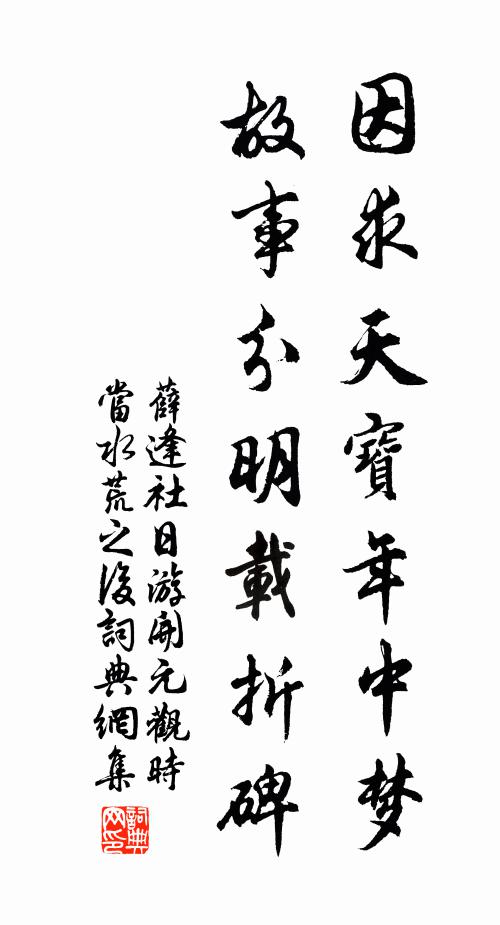 因求天寶年中梦
故事分明載折碑
薛逢社日游開元觀時
當水荒之後詞典網集
詞典
网印